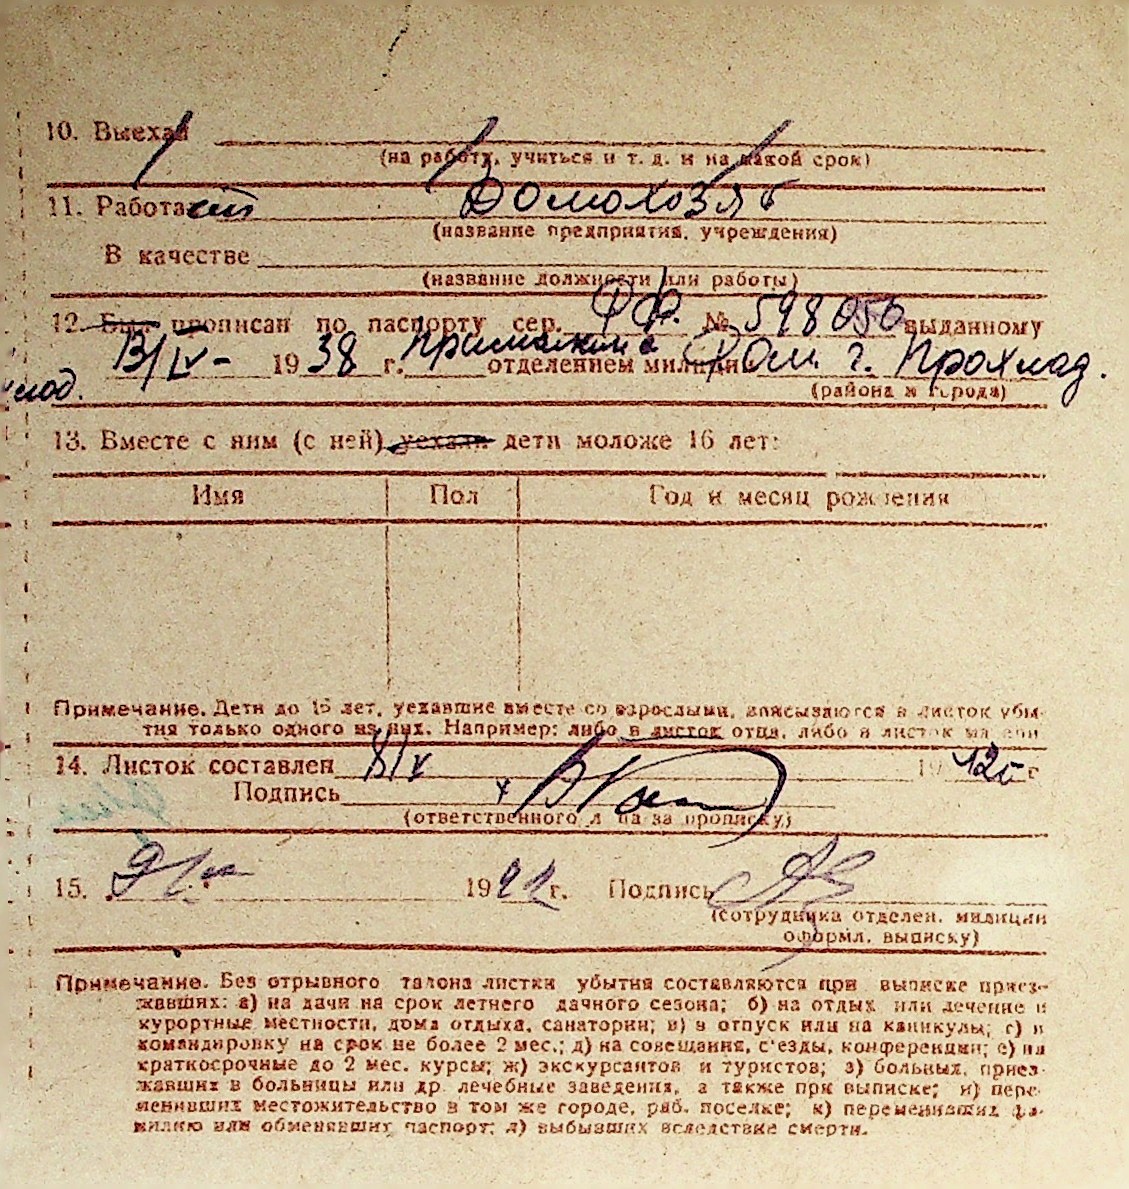 10. Выехал
(на работу, учиться и т. д. и на какой срок)
11. Работает Домохозяй
(название предприятия, учреждения)
В качестве
(название должности или работы)
12. Был прописан по паспорту сер. РФ. № 598050 выданному
13/IV- 1938 г. отделением милиции Ром. г. Прохлад.
(района и города)
13. Вместе с ним (с ней) уехали дети моложе 16 лет:
Имя Пол Год и месяц рождения
Примечание. Дети до 16 лет, уехавшие вместе со взрослыми, вписываются в листок убы-
тия только одного из них. Например: либо в листок отца, либо в листок матери
14. Листок составлен 8/V 19 г
Подпись
(ответственного лица за прописку)
15. 19 г. Подпись
(сотрудника отделен. милиции
оформл. выписку)
Примечание. Без отрывного талона листки убытия составляются при выписке приез-
жавших: а) на дачи на срок летнего дачного сезона; б) на отдых или лечение в
курортные местности, дома отдыха, санатории; в) в отпуск или на каникулы; г) в
командировку на срок не более 2 мес.; д) на совещания, с'езды, конференции; е) на
краткосрочные до 2 мес. курсы; ж) экскурсантов и туристов; з) больных, приез-
жавших в больницы или др. лечебные заведения, а также при выписке; и) пере-
менивших местожительство в том же городе, раб. поселке; к) переменивших фа-
милию или обменявших паспорт; л) выбывших вследствие смерти.